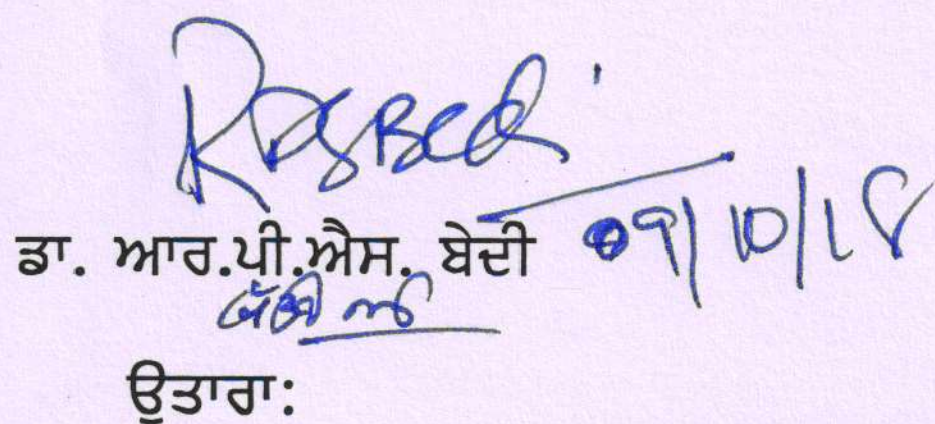 RPSBedi
ਡਾ. ਆਰ.ਪੀ.ਐਸ. ਬੇਦੀ 09/10/18
ਉਤਾਰਾ: